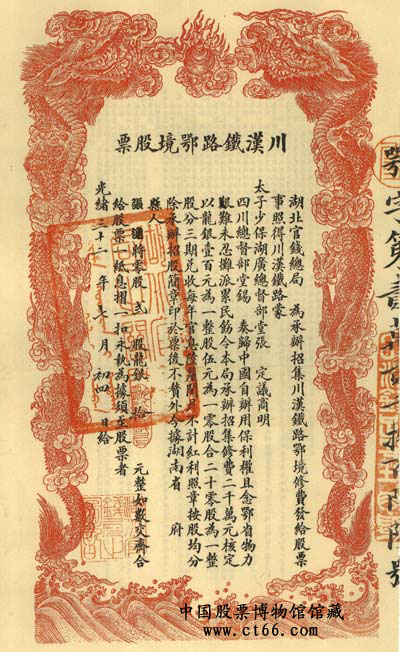 川漢鐵路鄂境股票
鄂字第壹萬
湖北官錢總局 為承辦招集川漢鐵路鄂境修費發給股票
事照得川漢鐵路蒙
太子少保湖廣總督部堂張 定議商明
四川總督部堂錫 奏歸中國自辦用保利權且念鄂省物力
艱難未忍攤派累民飭令本局承辦招集修費二千萬元核定
以龍銀壹百元為一整股伍元為一零股合二十零股為一整
股分三期兌收每年官息陸釐閏月不計紅利照章按股均分
除承辦招股簡章印於票後不贅外今據湖南省 府
縣人
將零股 弍 股龍銀 拾 元整如數交齊合
給股票一紙息摺一扣永執為據須至股票者
光緒三十二年七月初四日給
中国股票博物馆馆藏
www.ct66.com